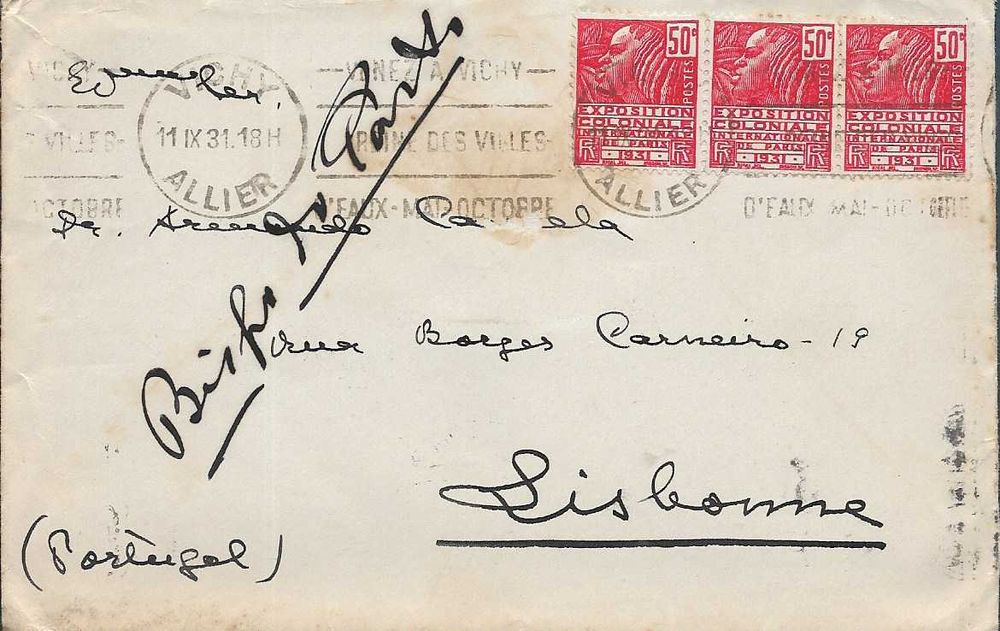 VICHY
11 IX 31. 18 H
ALLIER
VILLES-
OCTOBRE
— VENEZ A VICHY —
REINE DES VILLES-
D'EAUX-MAI-OCTOBRE
50c 50c 50c
POSTES POSTES POSTES
EXPOSITION EXPOSITION EXPOSITION
COLONIALE COLONIALE COLONIALE
INTERNATIONALE INTERNATIONALE INTERNATIONALE
DE PARIS DE PARIS DE PARIS
RF 1931 RF RF 1931 RF RF 1931 RF
ALLIER
D'EAUX-MAI-OCTOBRE
Dr. Armando
Bispo do Porto
rua Borges Carneiro - 19
Lisbonne
(Portugal)